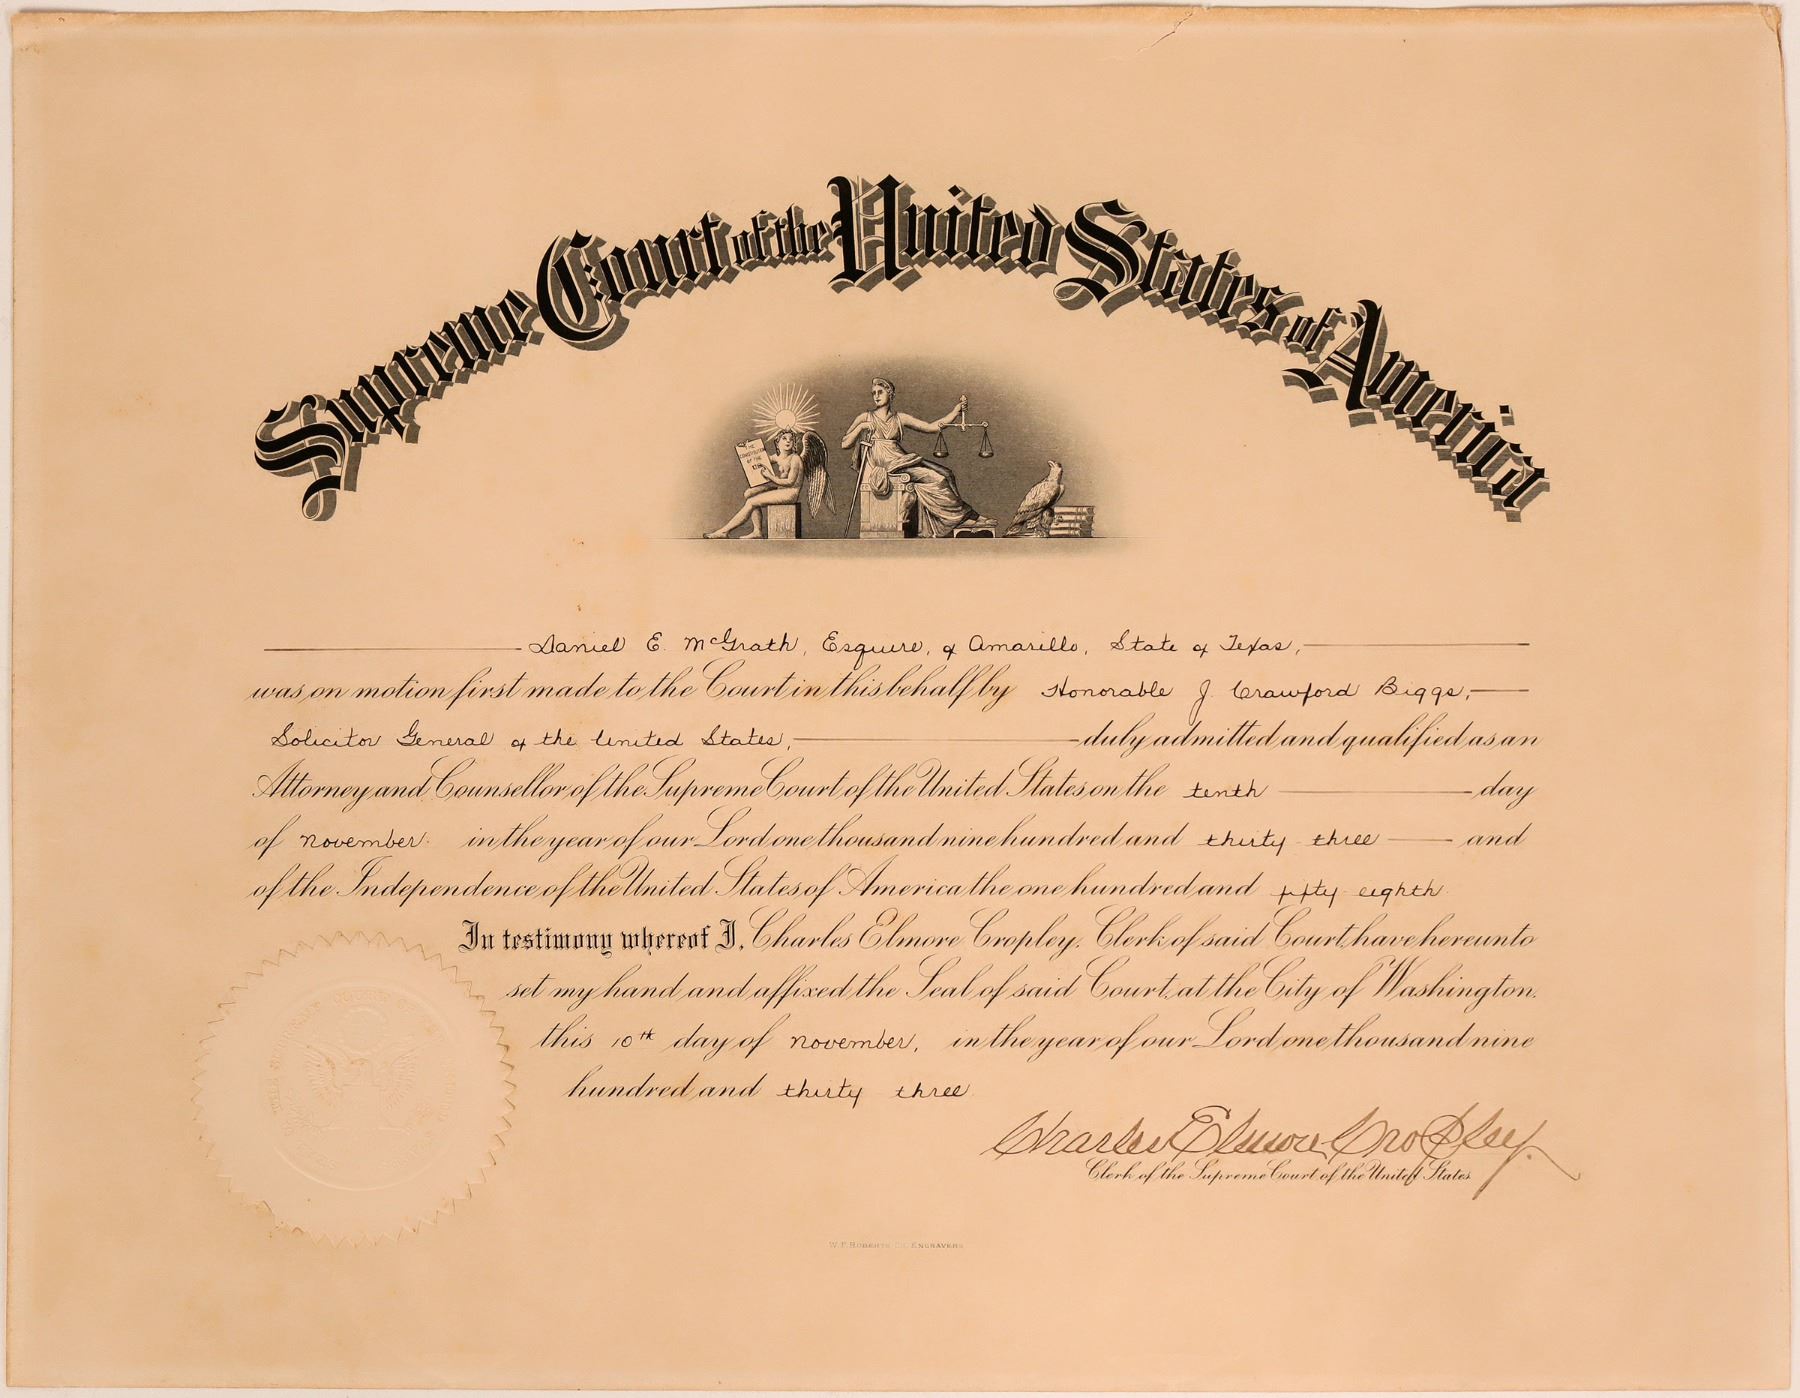 Supreme Court of the United States of America
THE CONSTITUTION OF THE
Daniel E. McGrath, Esquire, of Amarillo, State of Texas,
was on motion first made to the Court in this behalf by Honorable J. Crawford Biggs,
Solicitor General of the United States, duly admitted and qualified as an
Attorney and Counsellor of the Supreme Court of the United States on the tenth day
of November in the year of our Lord one thousand nine hundred and thirty three and
of the Independence of the United States of America the one hundred and fifty eighth
In testimony whereof I, Charles Elmore Cropley, Clerk of said Court, have hereunto
set my hand and affixed the Seal of said Court, at the City of Washington,
this 10th day of November, in the year of our Lord one thousand nine
hundred and thirty three
Charles Elmore Cropley.
Clerk of the Supreme Court of the United States
W. F. ROBERTS CO. ENGRAVERS